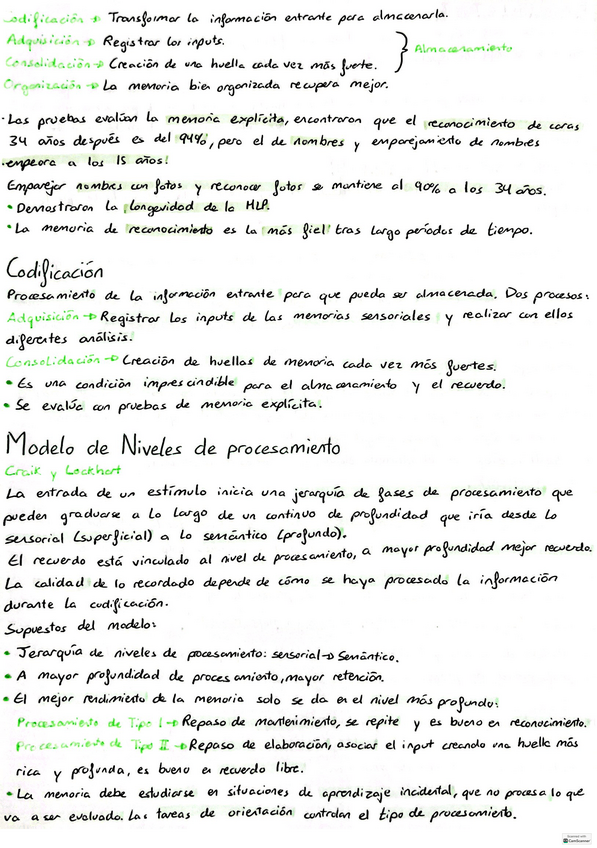 Codificación → Transformar la información entrante para almacenarla.
Adquisición → Registrar los inputs.
Consolidación → Creación de una huella cada vez más fuerte.
Almacenamiento
Organización → La memoria bien organizada recupera mejor.
· Las pruebas evalúan la memoria explícita, encontraron que el reconocimiento de caras
34 años después es del 94%, pero el de nombres y emparejamiento de nombres
empeora a los 15 años!
Emparejar nombres con fotos y reconocer fotos se mantiene al 90% a los 34 años.
• Demostraron la longevidad de la MLP.
• La memoria de reconocimiento es la más fiel tras largo períodos de tiempo.
Codificación
Procesamiento de la información entrante para que pueda ser almacenada. Dos procesos:
Adquisición → Registrar los inputs de las memorias sensoriales y realizar con ellos
diferentes análisis.
Consolidación → Creación de huellas de memoria cada vez más fuertes.
• Es una condición imprescindible para el almacenamiento y el recuerdo.
• Se evalúa con pruebas de memoria explícita.
Modelo de Niveles de procesamiento
Craik y Lockhart
La entrada de un estímulo inicia una jerarquía de fases de procesamiento que
pueden graduarse a lo largo de un continuo de profundidad que iría desde lo
sensorial (superficial) a lo semántico (profundo).
El recuerdo está vinculado al nivel de procesamiento, a mayor profundidad mejor recuerdo.
La calidad de lo recordado depende de cómo se haya procesado la información
durante la codificación.
Supuestos del modelo:
• Jerarquía de niveles de procesamiento: sensorial → Semántico.
• A mayor profundidad de procesamiento, mayor retención.
• El mejor rendimiento de la memoria solo se da en el nivel más profundo:
Procesamiento de Tipo I → Repaso de mantenimiento, se repite y es bueno en reconocimiento.
Procesamiento de Tipo II → Repaso de elaboración, asociar el input creando una huella más
rica y profunda, es bueno en recuerdo libre.
• La memoria debe estudiarse en situaciones de aprendizaje incidental, que no procesa lo que
va a ser evaluado. Las tareas de orientación controlan el tipo de procesamiento.
Scanned with
CamScanner